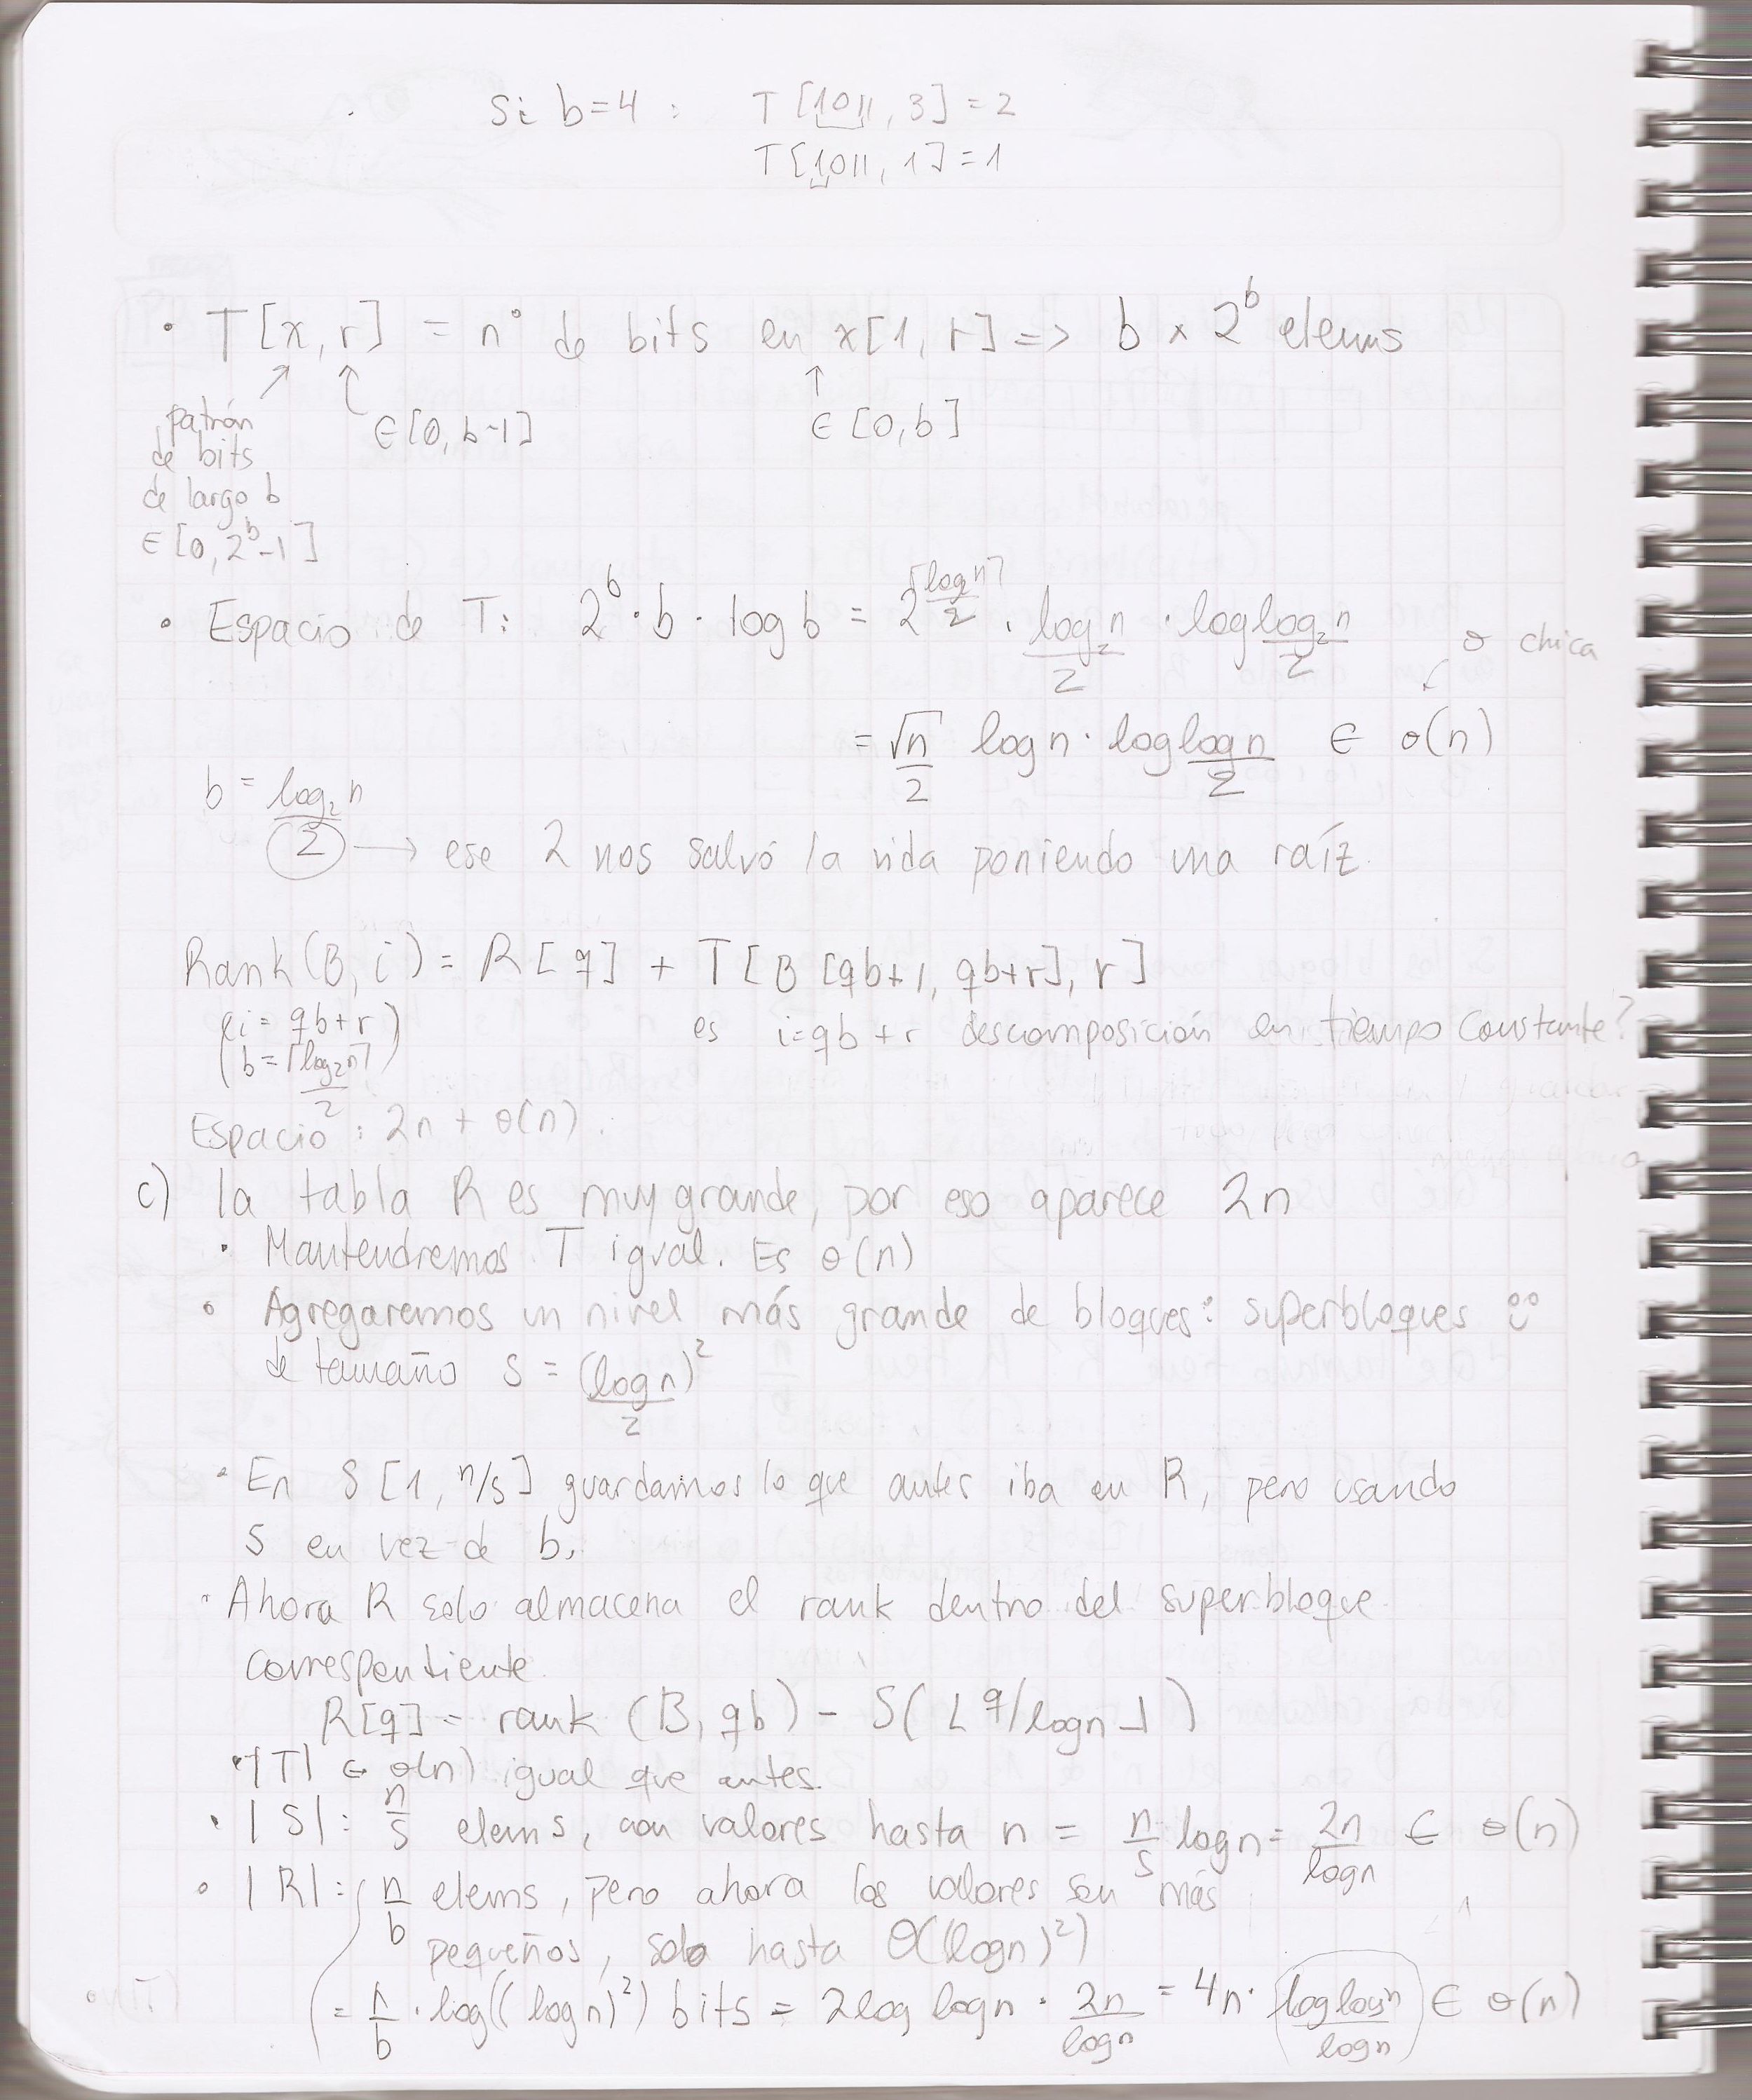 Si b=4 : T[1011, 3] = 2
T[1011, 1] = 1
• T[x, r] = n° de bits en x[1, r] => b × 2^b elems
patrón
de bits
de largo b
∈ [0, 2^b-1]
∈ [0, b-1]
∈ [0, b]
• Espacio de T: 2^b · b · log b = 2^(⌈log₂n⌉/2) · log₂n/2 · log log₂n/2
o chica
= √n/2 log n · log log n/2 ∈ o(n)
b = log₂n/2 → ese 2 nos salvó la vida poniendo una raíz.
Rank(B, i) = R[q] + T[B[qb+1, qb+r], r]
(i = qb+r)
(b = ⌈log₂n⌉/2)
es i=qb+r descomposición en tiempo constante?
Espacio: 2n + o(n).
c) la tabla R es muy grande, por eso aparece 2n
• Mantendremos T igual. Es o(n)
• Agregaremos un nivel más grande de bloques: superbloques
de tamaño s = (log n)²/2
• En S[1, n/s] guardamos lo que antes iba en R, pero usando
s en vez de b.
• Ahora R solo almacena el rank dentro del superbloque
correspondiente.
R[q] = rank (B, qb) - S(⌊q/log n⌋)
• |T| ∈ o(n) igual que antes.
• |S|: n/s elems, con valores hasta n = n/s log n = 2n/log n ∈ o(n)
• |R|: n/b elems, pero ahora los valores son más
pequeños, solo hasta O((log n)²)
= n/b · log((log n)²) bits = 2 log log n · 2n/log n = 4n · log log n/log n ∈ o(n)